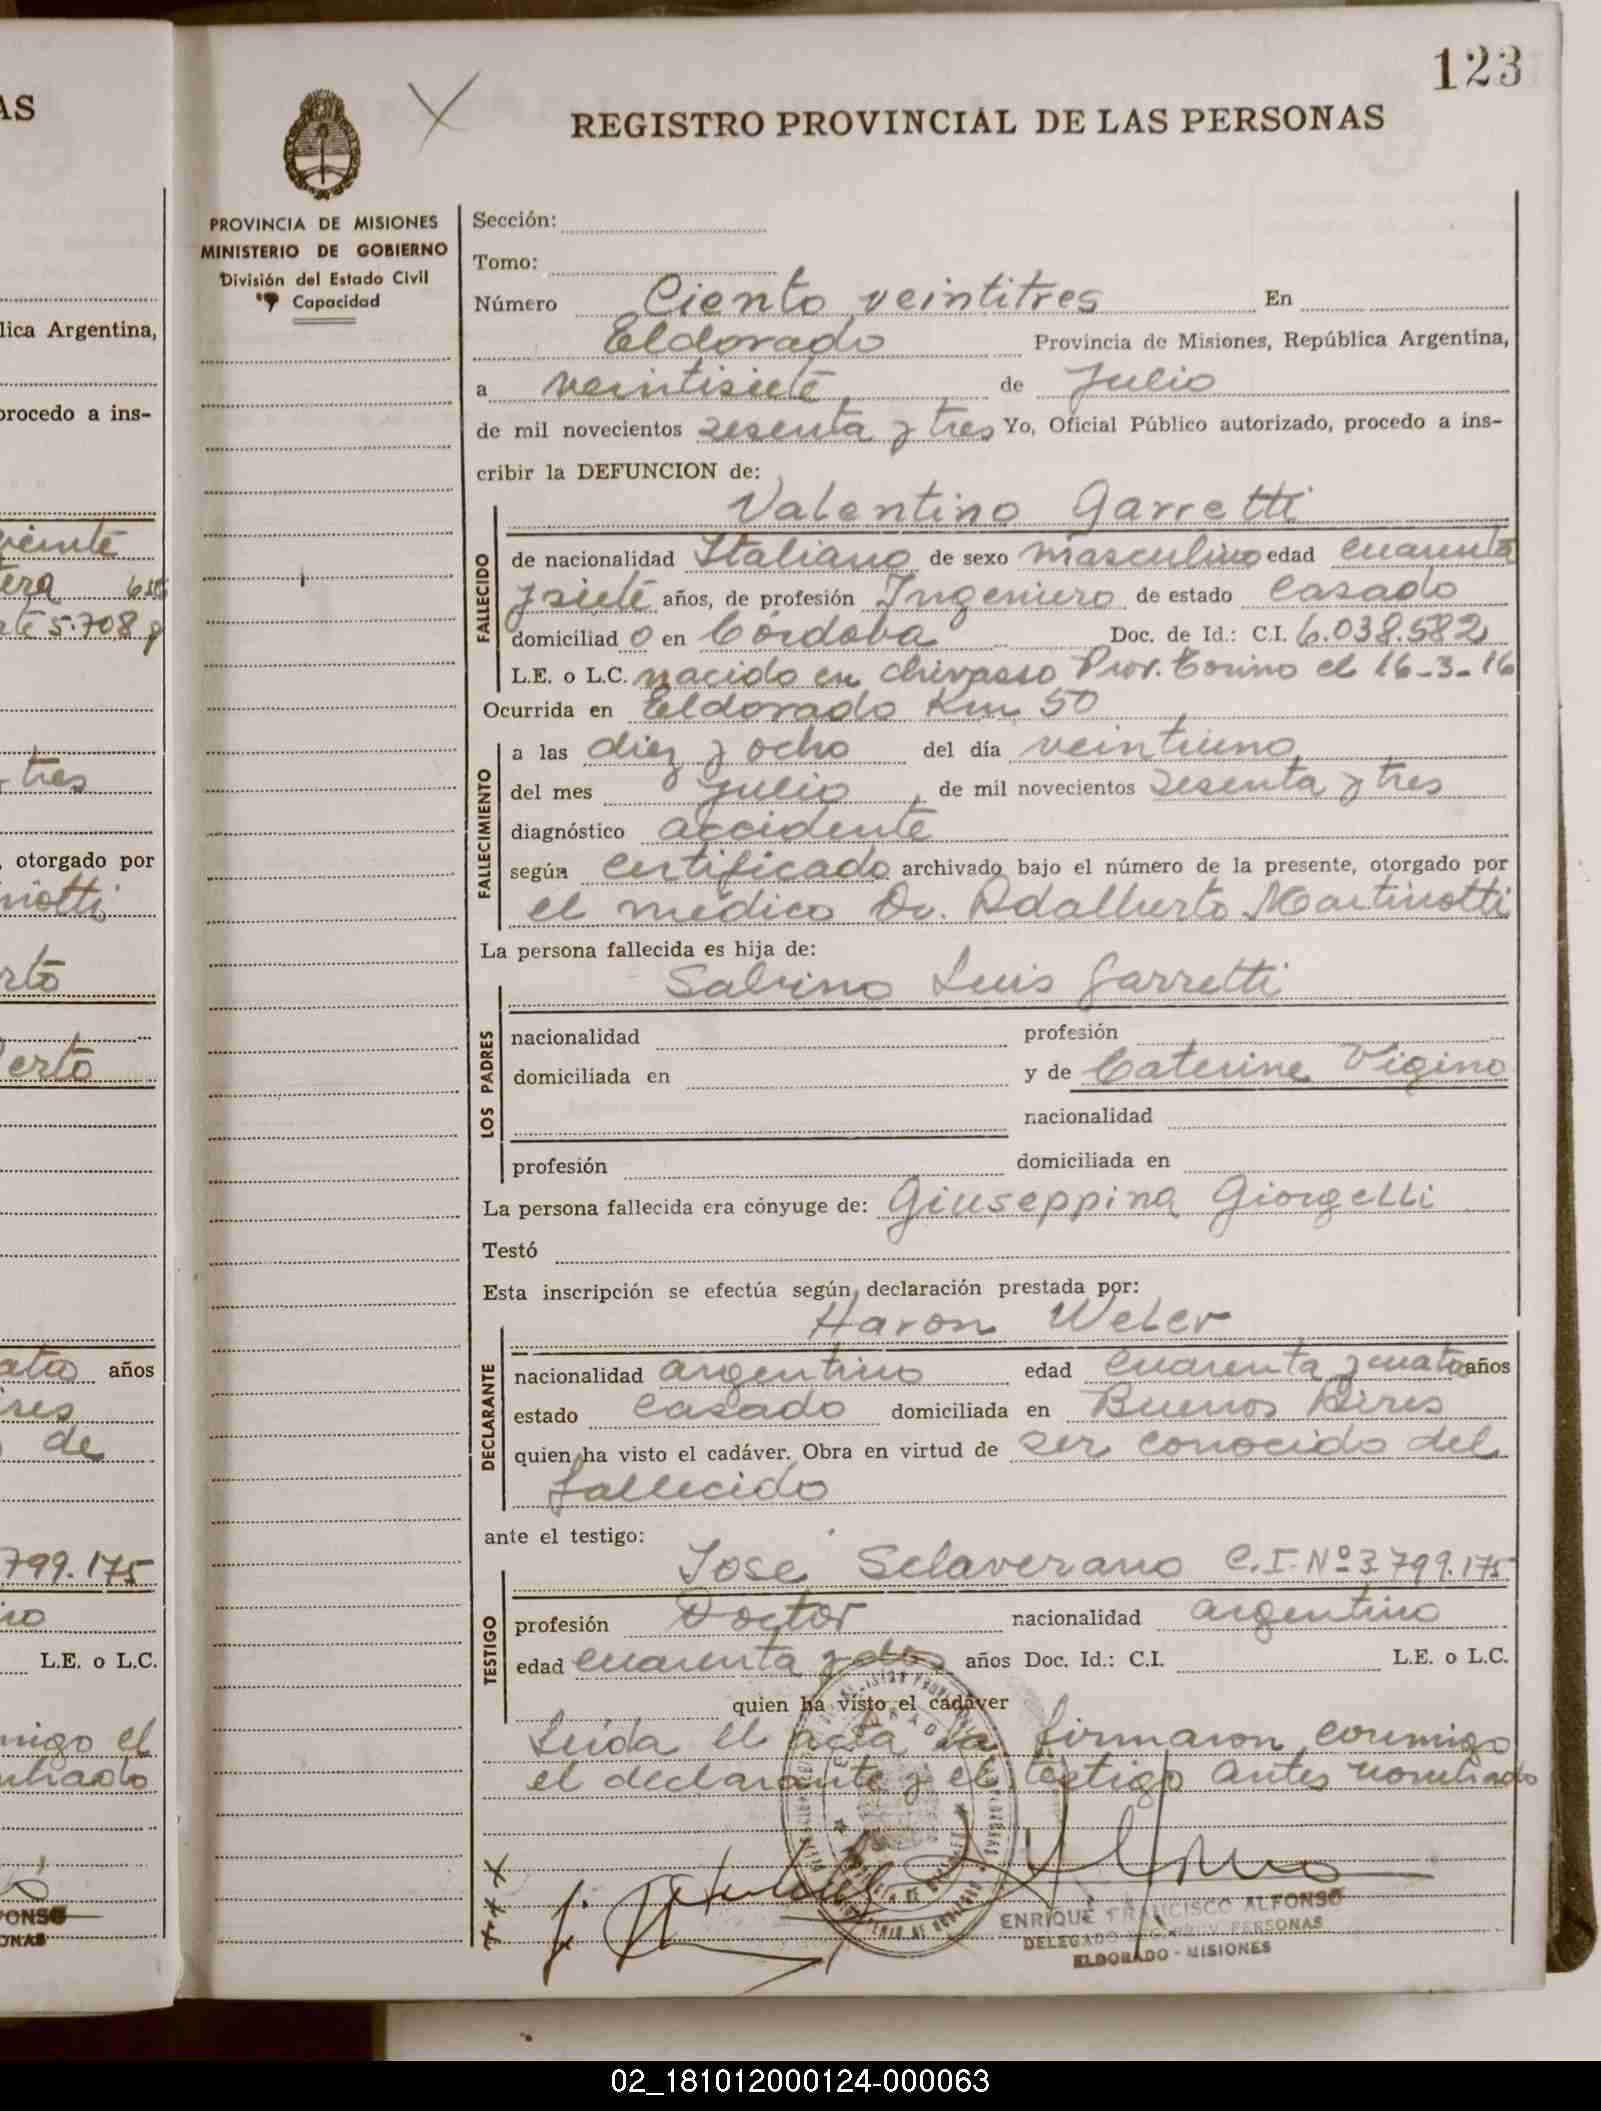 123
REGISTRO PROVINCIAL DE LAS PERSONAS
PROVINCIA DE MISIONES
MINISTERIO DE GOBIERNO
División del Estado Civil
y Capacidad
Sección:
Tomo:
Número Ciento veintitres En
Eldorado Provincia de Misiones, República Argentina,
a veintisiete de Julio
de mil novecientos sesenta y tres Yo, Oficial Público autorizado, procedo a ins-
cribir la DEFUNCION de:
Valentino Garretti
FALLECIDO
de nacionalidad Italiano de sexo masculino edad cuarenta
y siete años, de profesión Ingeniero de estado Casado
domiciliado en Córdoba Doc. de Id.: C.I. 6.038.582
L.E. o L.C. nacido en chivasso Prov. Torino el 16-3-16
Ocurrida en Eldorado Km 50
FALLECIMIENTO
a las diez y ocho del día veintiuno
del mes Julio, de mil novecientos sesenta y tres
diagnóstico accidente
según certificado archivado bajo el número de la presente, otorgado por
el medico Dr. Adalberto Martinotti
La persona fallecida es hija de:
Sabino Luis Garretti
LOS PADRES
nacionalidad profesión
domiciliada en y de Caterine Vigino
nacionalidad
profesión domiciliada en
La persona fallecida era cónyuge de: Giuseppina Giorgelli
Testó
Esta inscripción se efectúa según declaración prestada por:
Haron Weber
DECLARANTE
nacionalidad argentino edad cuarenta y cuatro años
estado Casado domiciliada en Buenos Aires
quien ha visto el cadáver. Obra en virtud de ser conocido del
fallecido
ante el testigo:
Jose Sclaverano C.I. Nº 3.799.175
TESTIGO
profesión Doctor nacionalidad argentino
edad cuarenta y dos años Doc. Id.: C.I. L.E. o L.C.
quien ha visto el cadáver
Leida el acta la firmaron conmigo
el declarante y el testigo antes nombrado
ENRIQUE FRANCISCO ALFONSO
DELEGADO REG. PROV. PERSONAS
ELDORADO - MISIONES
AS
lica Argentina,
procedo a ins-
veinte
5.708
tres
, otorgado por
notti
rto
erto
años
de
799.175
L.E. o L.C.
migo el
02_181012000124-000063